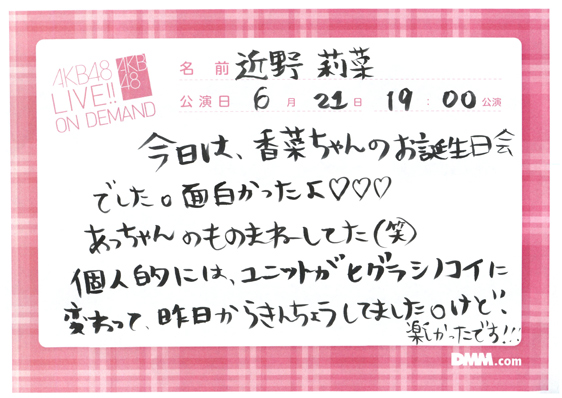 AKB48
LIVE!!
ON DEMAND
AKB
48
名前 近野 莉菜
公演日 6月21日 19:00公演
今日は、香菜ちゃんのお誕生日会
でした。面白かったよ♡♡♡
あっちゃんのものまねーしてた(笑)
個人的には、ユニットがヒグラシノコイに
変わって、昨日からきんちょうしてました。けど、
楽しかったです!!!
DMM.com